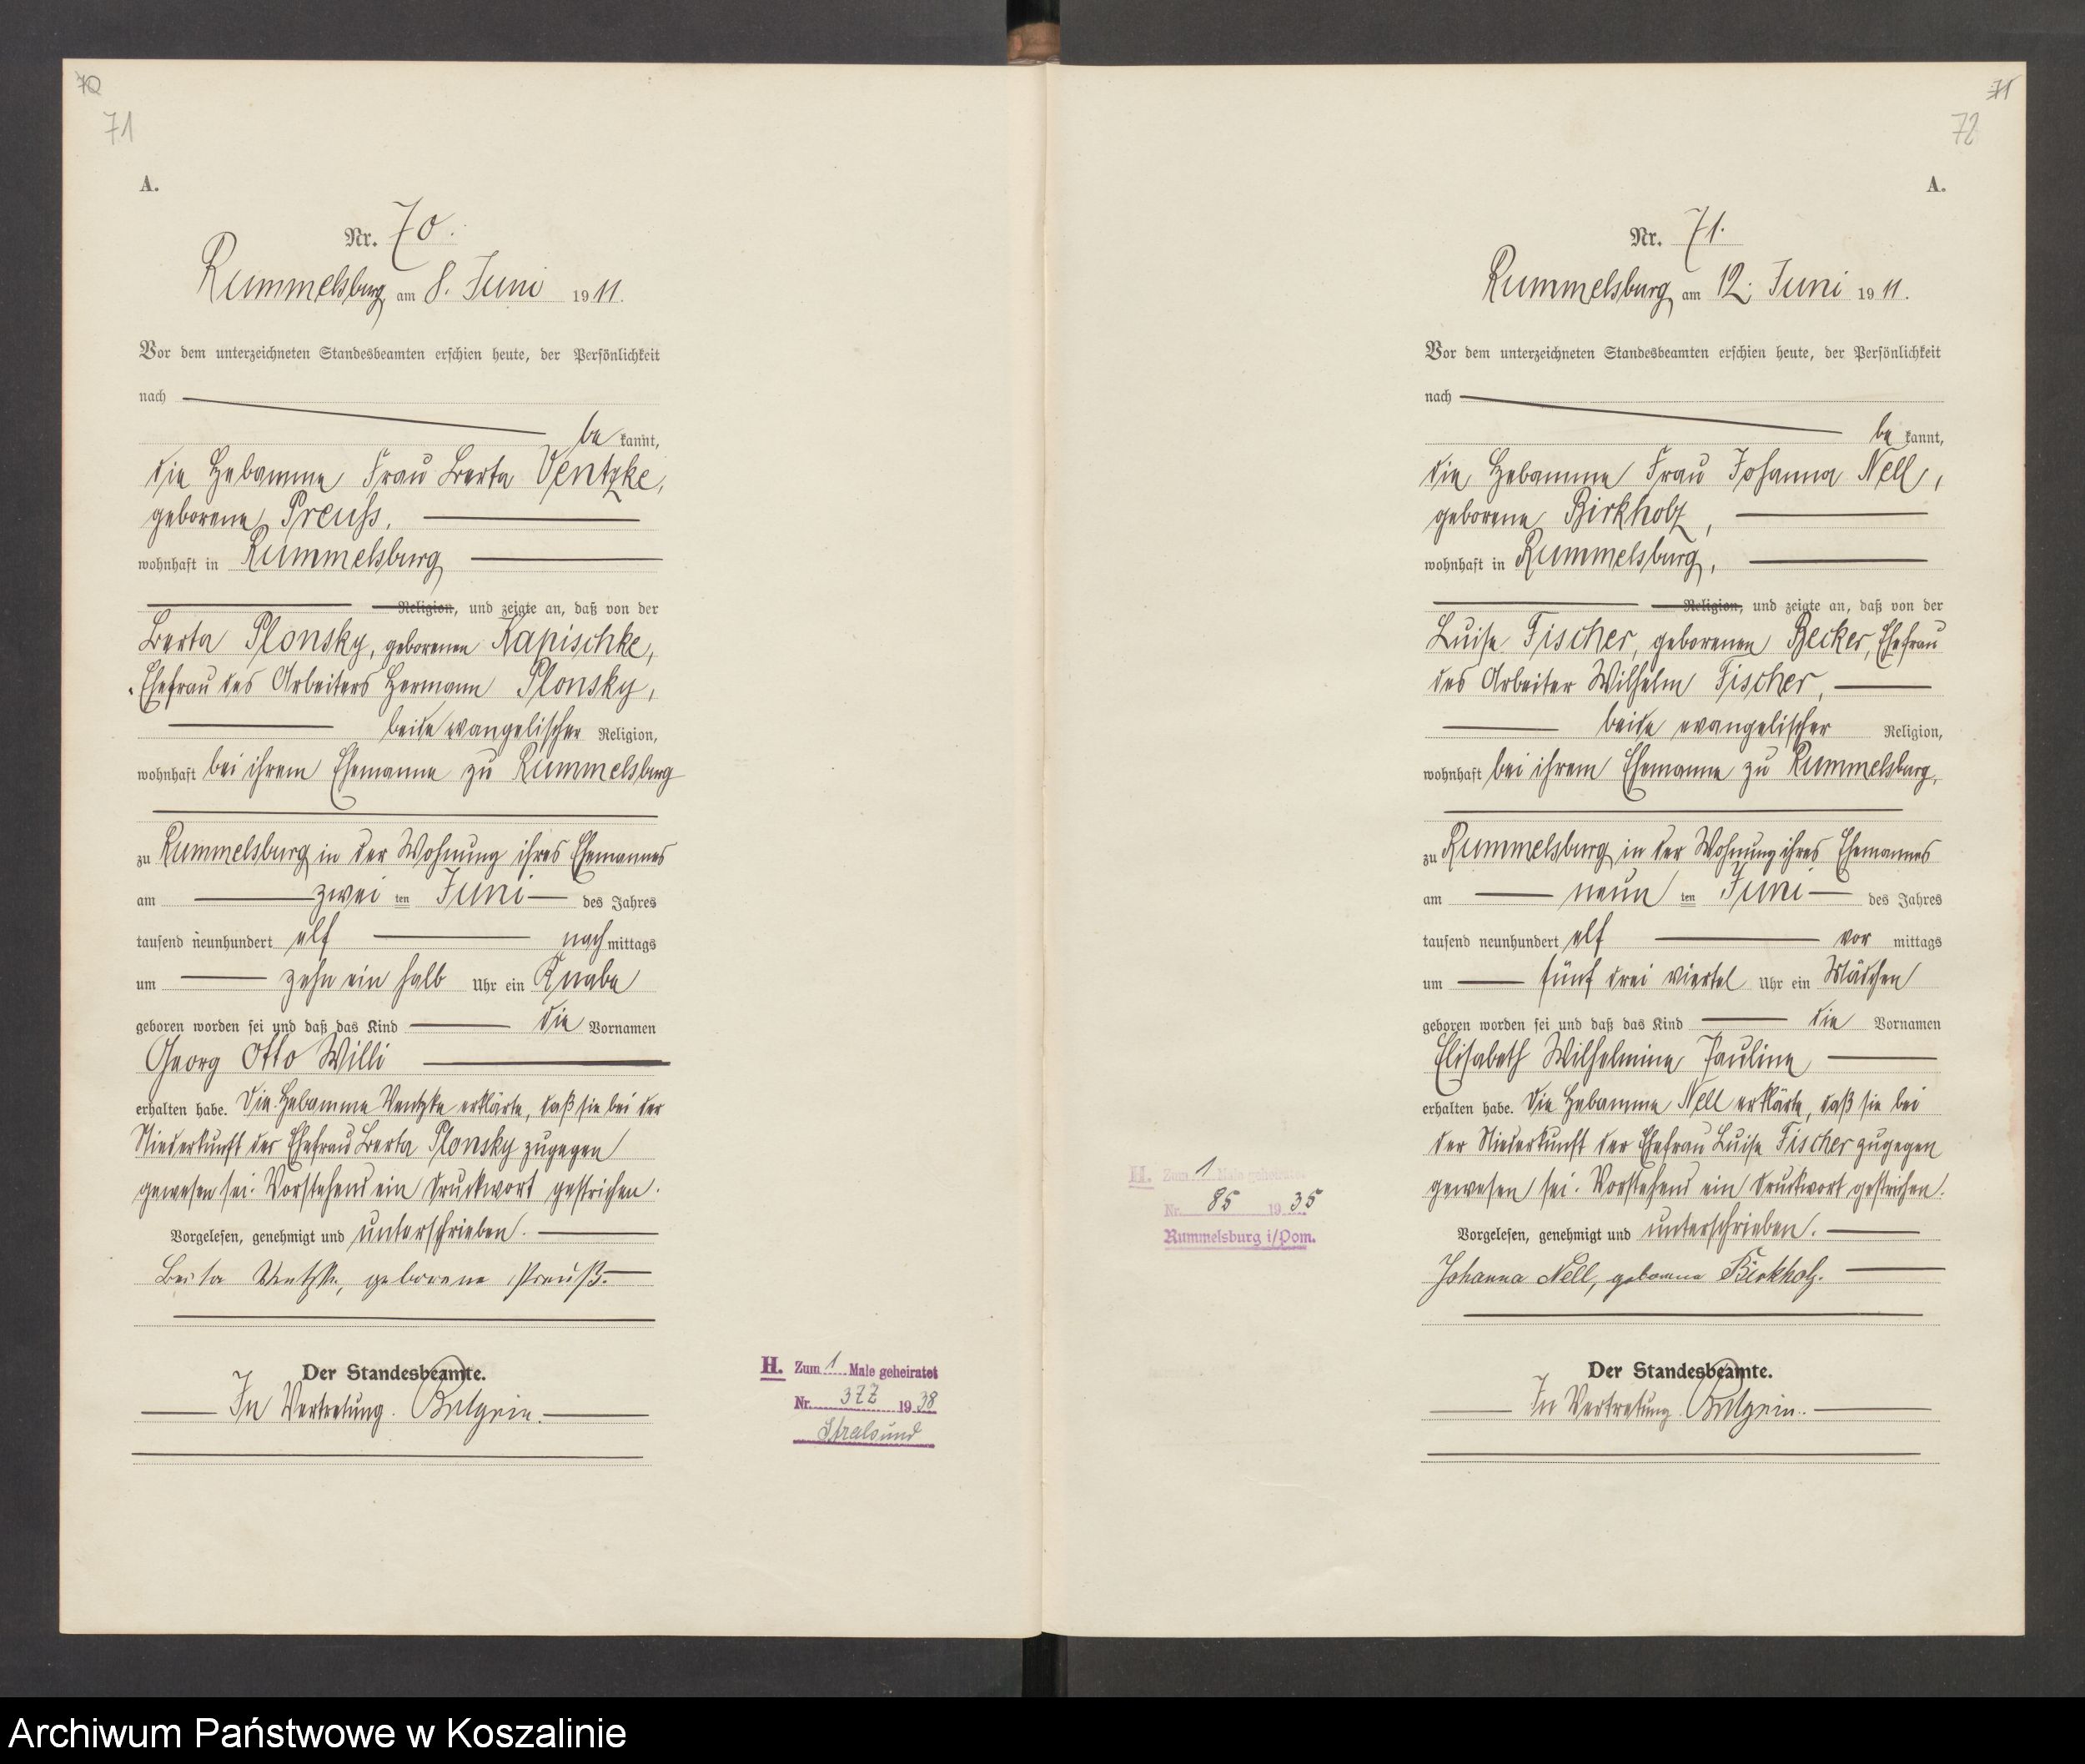 70
71
A.
Nr. 70.
Rummelsburg am 8. Juni 1911.
Vor dem unterzeichneten Standesbeamten erschien heute, der Persönlichkeit
nach
be kannt,
die Hebamme Frau Berta Ventzke,
geborene Preuß,
wohnhaft in Rummelsburg
Religion, und zeigte an, daß von der
Berta Plonsky, geborenen Kapischke,
Ehefrau des Arbeiters Hermann Plonsky,
beide evangelischer Religion,
wohnhaft bei ihrem Ehemanne zu Rummelsburg
zu Rummelsburg in der Wohnung ihres Ehemannes
am zwei ten Juni des Jahres
tausend neunhundert elf nach mittags
um zehn ein halb Uhr ein Knabe
geboren worden sei und daß das Kind die Vornamen
Georg Otto Willi
erhalten habe. Die Hebamme Ventzke erklärte, daß sie bei der
Niederkunft der Ehefrau Berta Plonsky zugegen
gewesen sei. Vorstehend ein Druckwort gestrichen.
Vorgelesen, genehmigt und unterschrieben.
Berta Ventzke, geborene Preuß.
Der Standesbeamte.
In Vertretung.
H. Zum 1 Male geheiratet
Nr. 372 1938
Stralsund
71
72
A.
Nr. 71.
Rummelsburg am 12. Juni 1911.
Vor dem unterzeichneten Standesbeamten erschien heute, der Persönlichkeit
nach
be kannt,
die Hebamme Frau Johanna Nell,
geborene Birkholz,
wohnhaft in Rummelsburg,
Religion, und zeigte an, daß von der
Luise Fischer, geborenen Becker, Ehefrau
des Arbeiter Wilhelm Fischer,
beide evangelischer Religion,
wohnhaft bei ihrem Ehemanne zu Rummelsburg,
zu Rummelsburg in der Wohnung ihres Ehemannes
am neun ten Juni des Jahres
tausend neunhundert elf vor mittags
um fünf drei viertel Uhr ein Mädchen
geboren worden sei und daß das Kind die Vornamen
Elisabeth Wilhelmine Pauline
erhalten habe. Die Hebamme Nell erklärte, daß sie bei
der Niederkunft der Ehefrau Luise Fischer zugegen
gewesen sei. Vorstehend ein Druckwort gestrichen.
Vorgelesen, genehmigt und unterschrieben.
Johanna Nell, geborene Birkholz.
Der Standesbeamte.
In Vertretung.
H. Zum 1 Male geheiratet
Nr. 85 1935
Rummelsburg i/Pom.
Archiwum Państwowe w Koszalinie